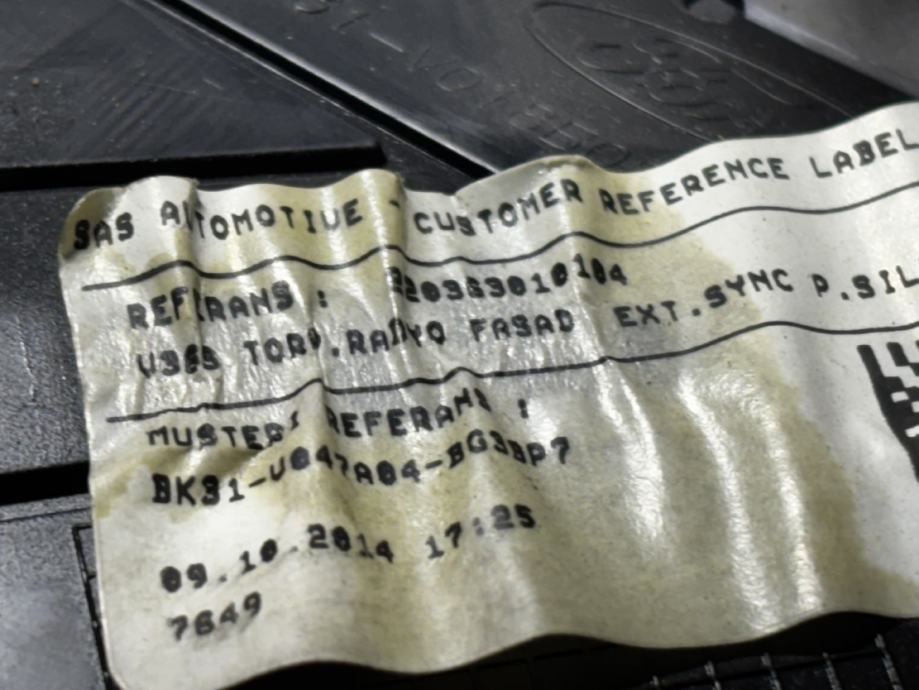 SAS AUTOMOTIVE - CUSTOMER REFERENCE LABEL
REFERANS : 220363010104
V363 TORP.RADYO FASAD EXT.SYNC P.SIL
MUSTERI REFERANS :
BK31-V047A04-BG3BP7
09.10.2014 17:25
7649